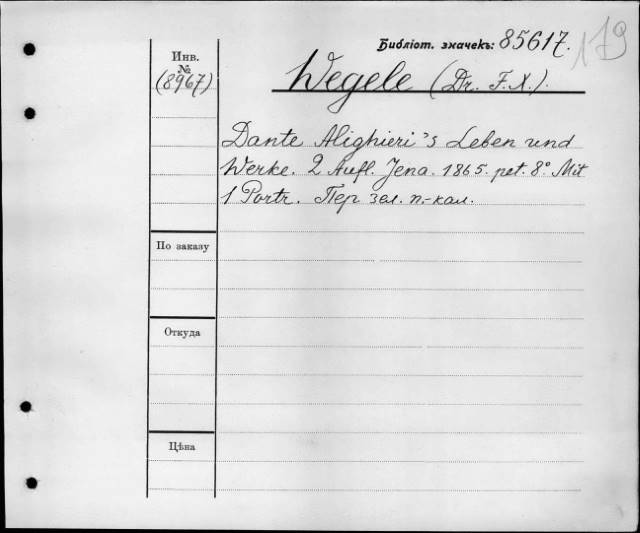 Библіот. значекъ: 85617.
179
Инв.
№
(8967)
Wegele (Dr. F. X.).
Dante Alighieri's Leben und
Werke. 2 Aufl. Jena. 1865. pet. 8° Mit
1 Portr. Пер зел. п.-кал.
По заказу
Откуда
Цѣна